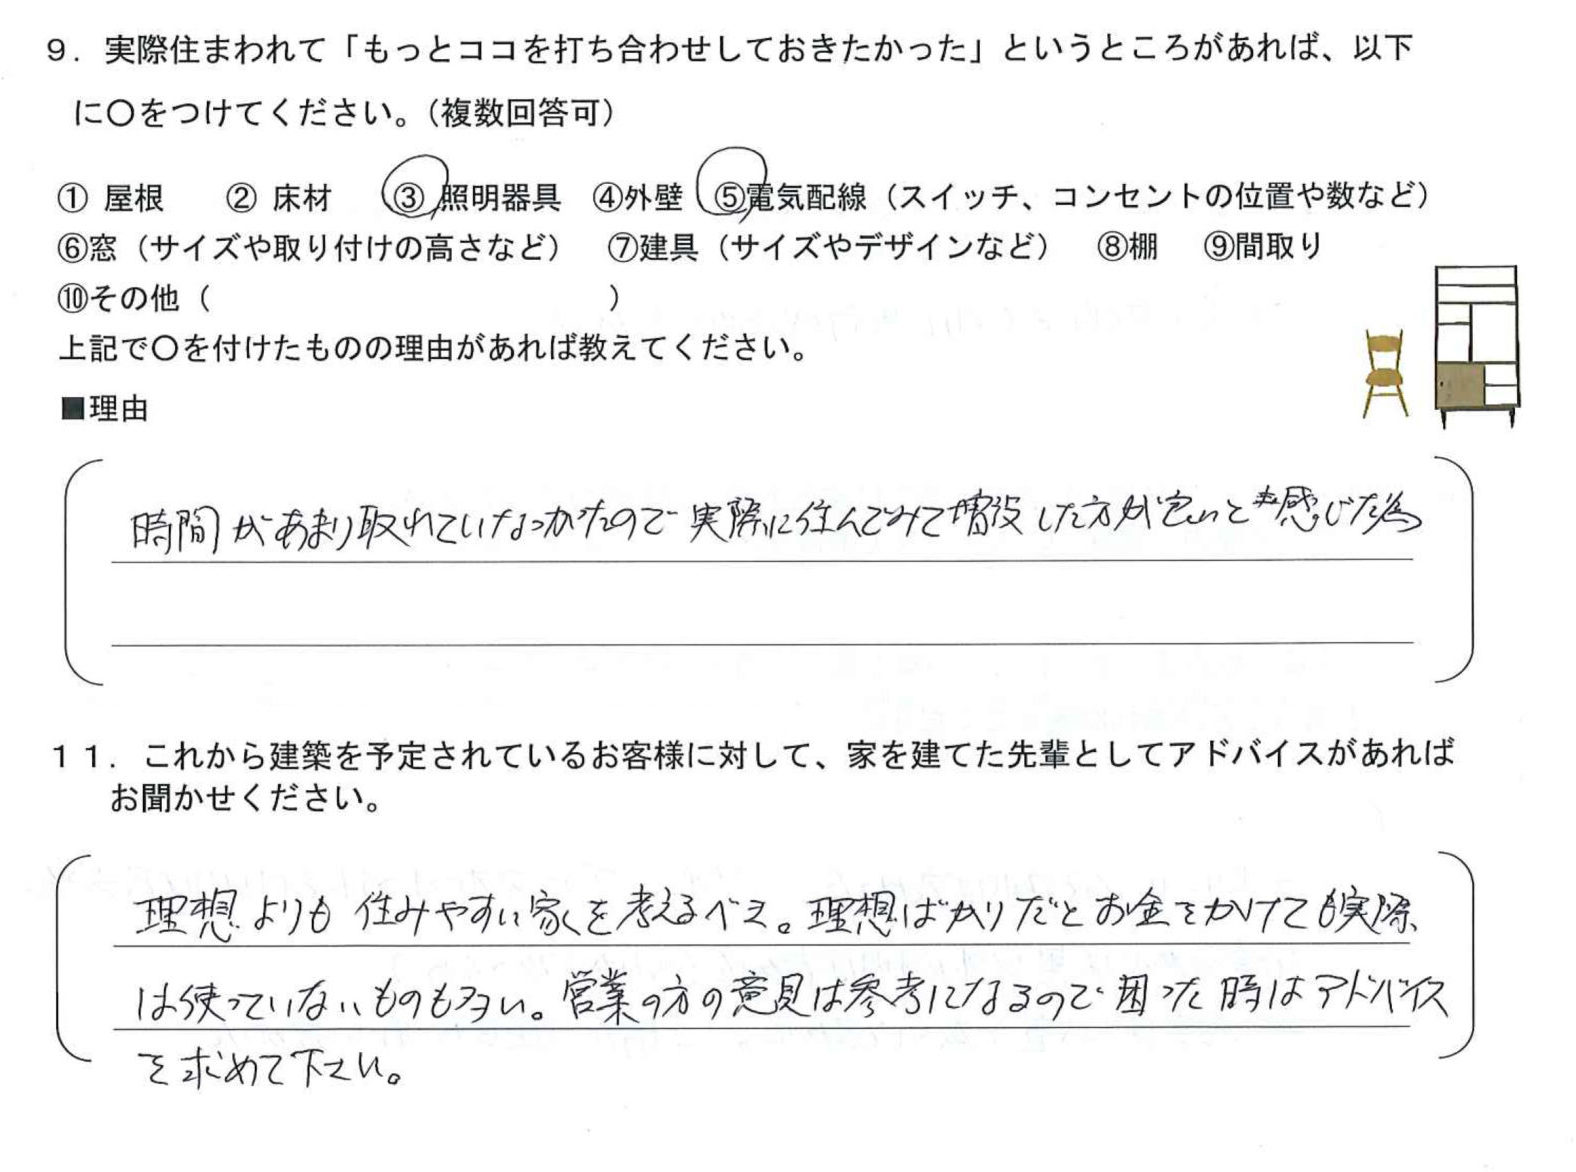 ９．実際住まわれて「もっとココを打ち合わせしておきたかった」というところがあれば、以下
に〇をつけてください。（複数回答可）
① 屋根　② 床材　③ 照明器具　④外壁　⑤電気配線（スイッチ、コンセントの位置や数など）
⑥窓（サイズや取り付けの高さなど）　⑦建具（サイズやデザインなど）　⑧棚　⑨間取り
⑩その他（　　　　　　　　　　　　　）
上記で〇を付けたものの理由があれば教えてください。
■理由
時間があまり取れていなかったので実際に住んでみて増設した方が良いと感じた為
１１．これから建築を予定されているお客様に対して、家を建てた先輩としてアドバイスがあれば
お聞かせください。
理想よりも住みやすい家を考えるべき。理想ばかりだとお金をかけても実際、
は使っていないものも多い。営業の方の意見は参考になるので困った時はアドバイス
を求めて下さい。